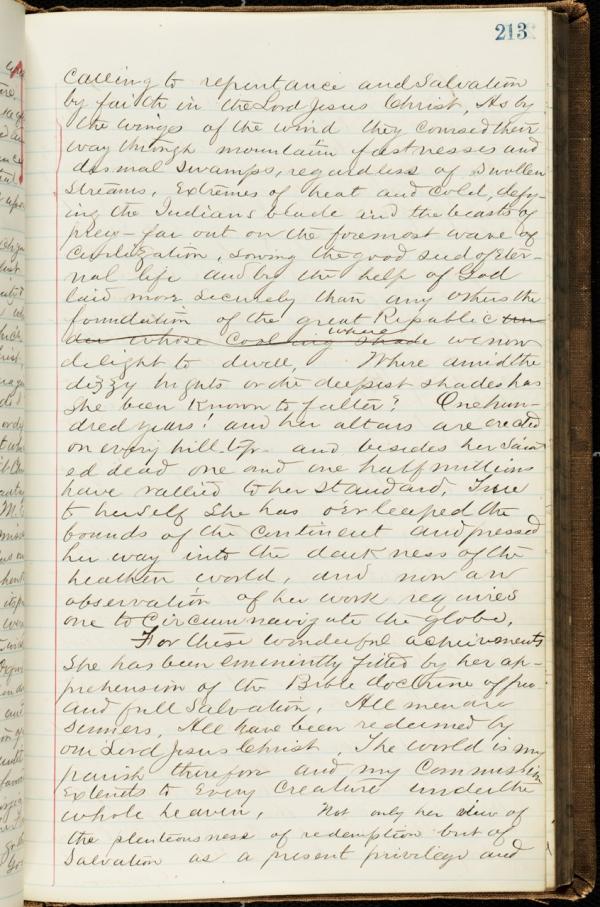 213
Calling to repentance and Salvation
by faith in the Lord Jesus Christ, As by
the wings of the wind they coursed their
way through mountain fastnesses and
dismal swamps, regardless of Swollen
Streams, Extremes of heat and Cold, defy-
ing the Indians blade and the beasts of
prey - far out on the foremost wave of
Civilization, sowing the good seed of Eter-
nal life and by the help of God
laid more securely than any others the
foundation of the great Republic un-
der whose where shade we now
delight to dwell, Where amid the
dizzy hights or the deepest shades has
She been Known to falter? One hun-
dred years! and her altars are erected
on every hill top and besides her saint-
ed dead one and one half millions
have rallied to her Standard, True
to herself She has o'erleaped the
bounds of the Continent and pressed
her way into the darkness of the
heathen world, and now an
observation of her work requires
one to Circumnavigate the globe,
For these wonderful achievements
She has been eminently fitted by her ap-
prehension of the Bible doctrine of free
and full Salvation, All men are
Sinners, All have been redeemed by
our Lord Jesus Christ, The world is my
parish therefore and my Commission
Extends to Every Creature under the
whole heaven, Not only her view of
the plenteousness of redemption but of
Salvation as a present privilege and